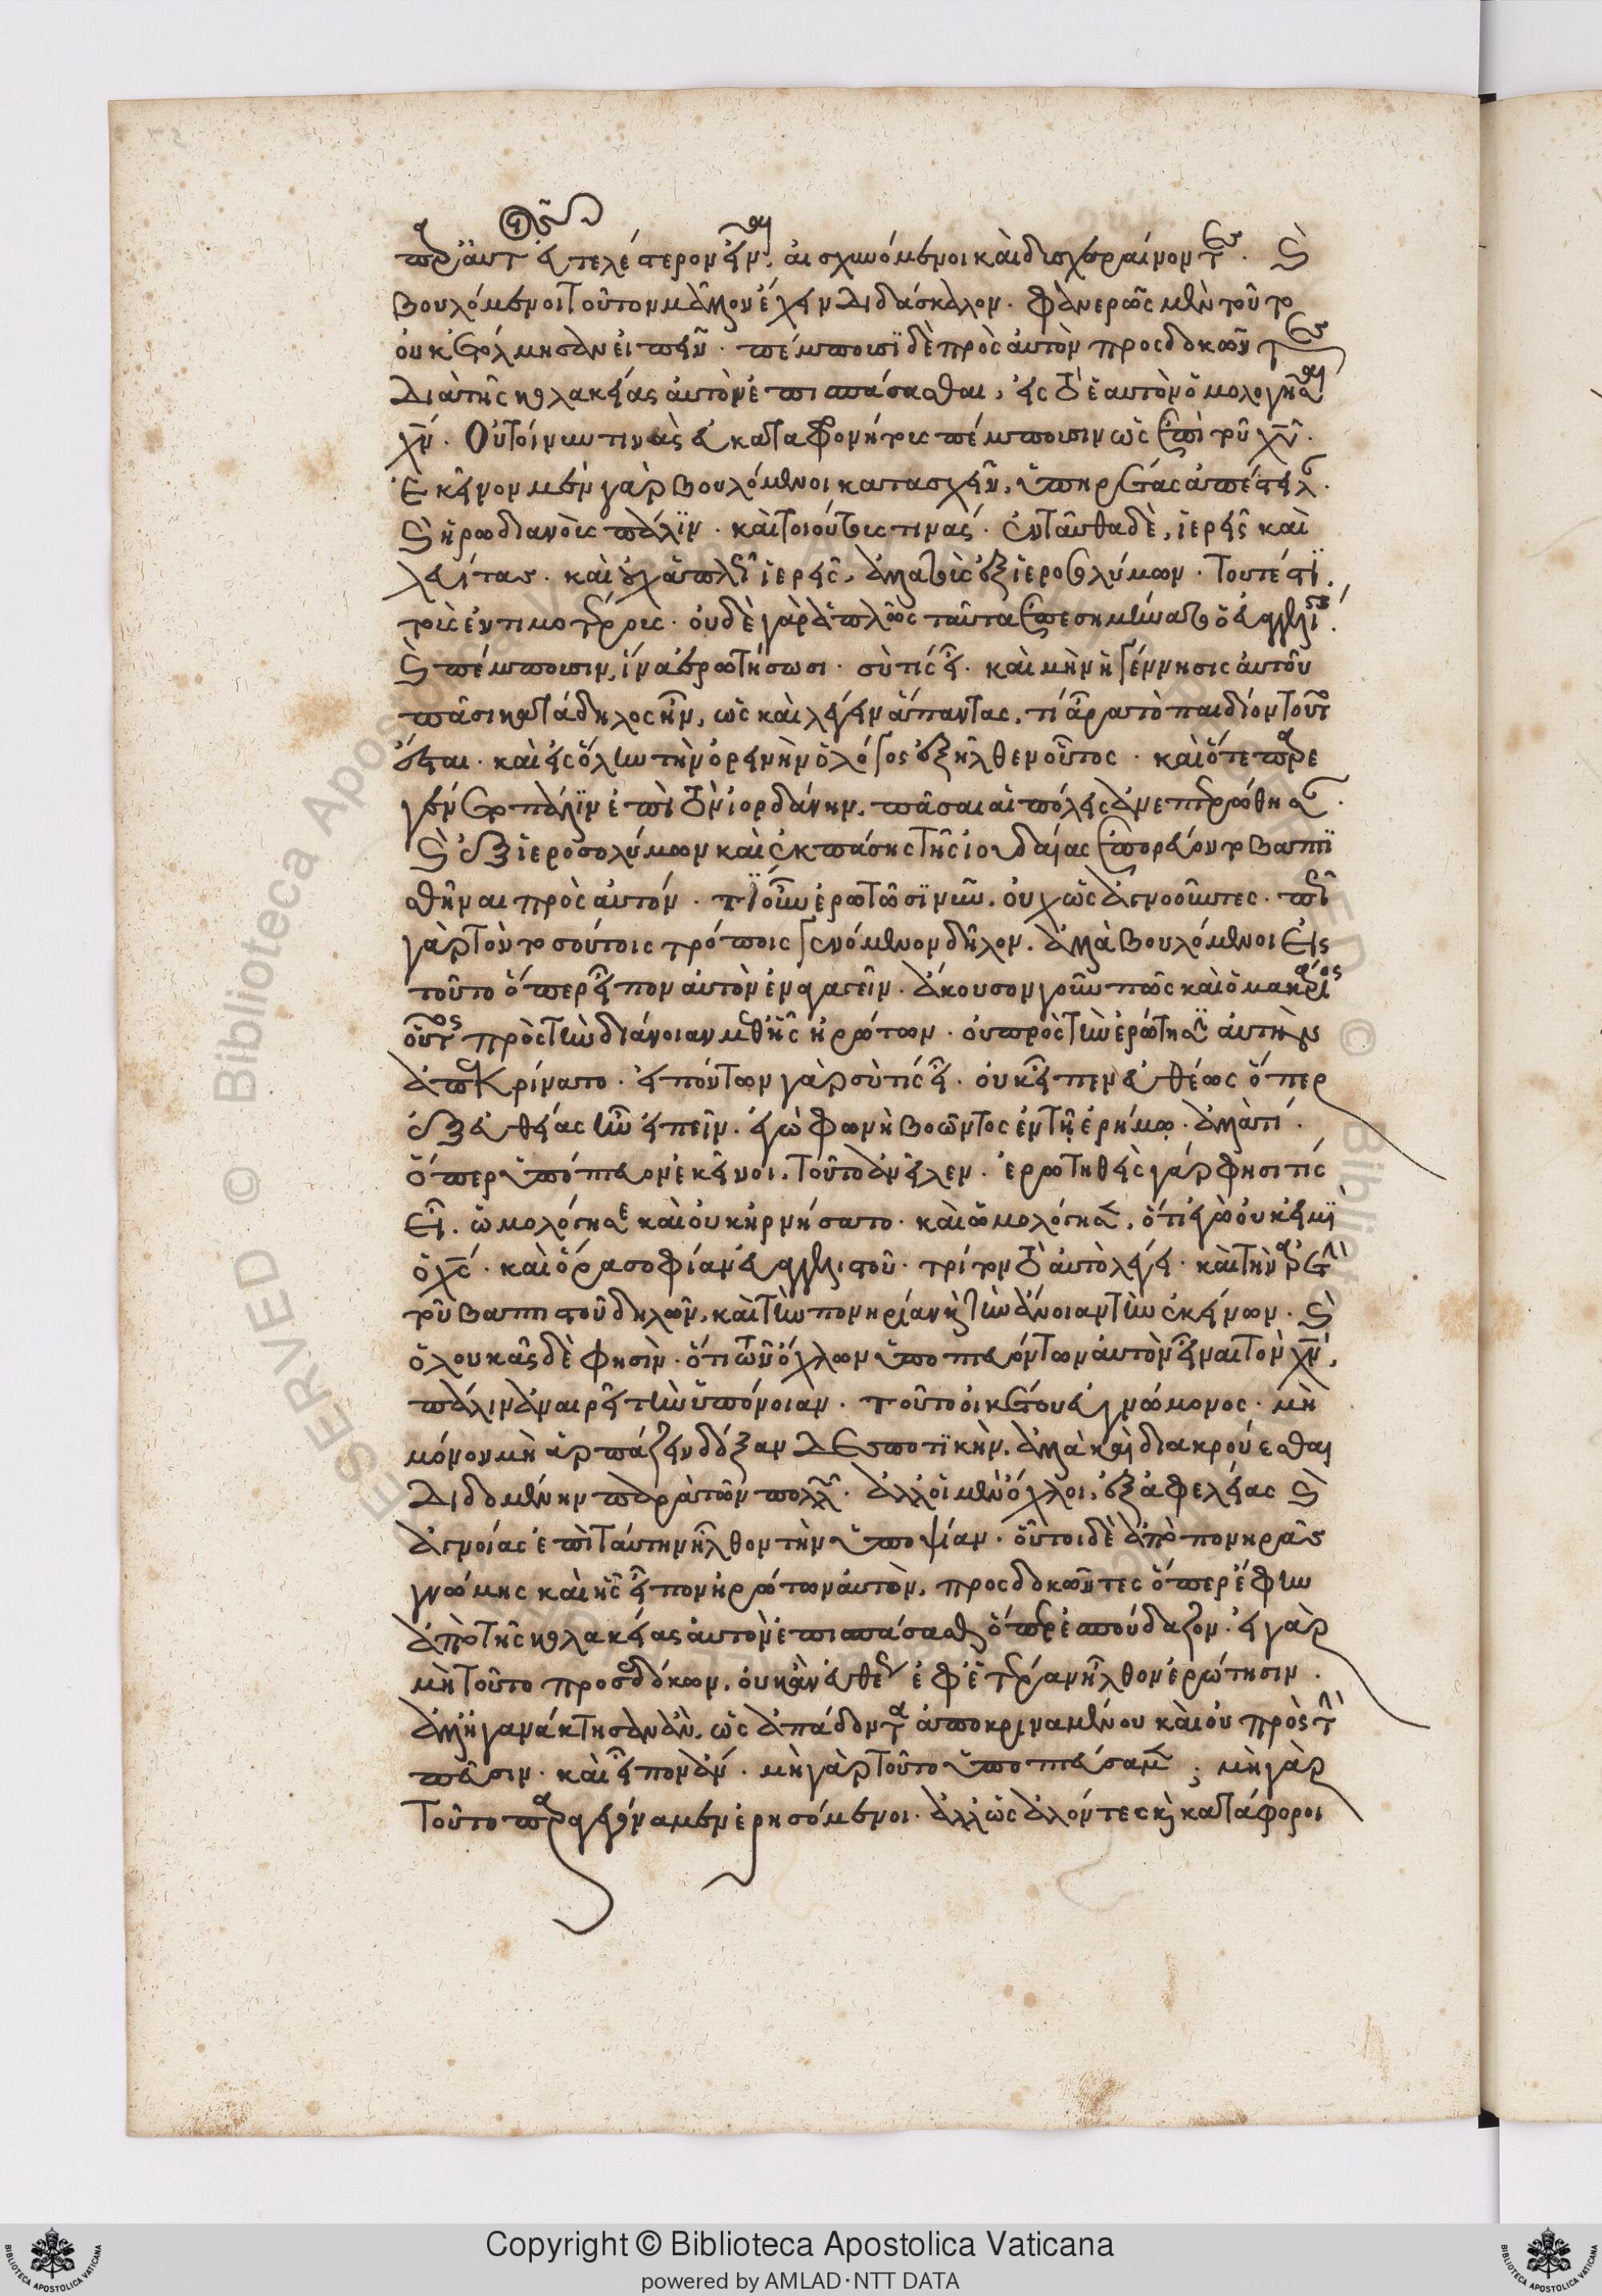 παρ' αὐτοῦ εὐτελέστερον εἶναι, αἰσχυνόμενοι καὶ δυσχεραίνοντες. καὶ
βουλόμενοι τοῦτον μᾶλλον ἔχειν διδάσκαλον. φανερῶς μὲν τοῦτο
οὐκ ἐτόλμησαν εἰπεῖν. πέμπουσι δὲ πρὸς αὐτὸν προσδοκῶντες
διὰ τῆς κολακείας αὐτὸν ἐπισπάσασθαι, εἰς τὸ ἑαυτὸν ὁμολογῆσαι
χν. Οὐ τοίνυν τινὰς εὐκαταφρονήτους πέμπουσιν ὡς ἐπὶ τοῦ χυ.
Ἐκεῖνον μὲν γὰρ βουλόμενοι κατασχεῖν, ὑπηρέτας ἀπέστειλαν.
καὶ ἡρωδιανοὺς πάλιν. καὶ τοιούτους τινάς. ἐνταῦθα δὲ, ἱερεῖς καὶ
λευίτας. καὶ οὐχ ἁπλῶς ἱερεῖς, ἀλλὰ τοὺς ἐξ ἱεροσολύμων. τουτέστι
τοὺς ἐντιμοτέρους. οὐδὲ γὰρ ἁπλῶς ταῦτα ἐπεσημήνατο ὁ εὐαγγελιστής.
καὶ πέμπουσιν, ἵνα ἐρωτήσωσι. σὺ τίς εἶ. καὶ μὴν ἡ γέννησις αὐτοῦ
πᾶσι κατάδηλος ἦν, ὡς καὶ λέγειν ἅπαντας, τί ἄρα τὸ παιδίον τοῦτο
ἔσται. καὶ εἰς ὅλην τὴν ὀρεινὴν ὁ λόγος ἐξῆλθεν οὗτος. καὶ ὅτε παρε
γένετο πάλιν ἐπὶ τὸν ἰορδάνην, πᾶσαι αἱ πόλεις ἀνεπτερώθησαν.
καὶ ἐξ ἱεροσολύμων καὶ ἐκ πάσης τῆς ἰουδαίας ἐπορεύοντο βαπτι
σθῆναι πρὸς αὐτόν. τί οὖν ἐρωτῶσι νῦν. οὐχ ὡς ἀγνοοῦντες. πῶς
γὰρ τὸν τοσούτοις τρόποις γενόμενον δῆλον. ἀλλὰ βουλόμενοι εἰς
τοῦτο ὅπερ εἶπον αὐτὸν ἐναγαγεῖν. ἄκουσον γοῦν πῶς καὶ ὁ μακάριος
οὗτος πρὸς τὴν διάνοιαν μεθ' ἧς ἠρώτων. οὐ πρὸς τὴν ἐρώτησιν αὐτὴν
ἀπεκρίνατο. εἰπόντων γὰρ σὺ τίς εἶ. οὐκ εἶπεν εὐθέως ὅπερ
ἐξ εὐθείας ἦν εἰπεῖν. ἐγὼ φωνὴ βοῶντος ἐν τῇ ἐρήμῳ. ἀλλὰ τί.
ὅπερ ὑπώπτευον ἐκεῖνοι, τοῦτο ἀνεῖλεν. ἐρωτηθεὶς γάρ φησι τίς
εἶ. ὡμολόγησε καὶ οὐκ ἠρνήσατο. καὶ ὡμολόγησεν, ὅτι ἐγὼ οὐκ εἰμὶ
ὁ χς. καὶ ὅρα σοφίαν εὐαγγελιστοῦ. τρίτον τὸ αὐτὸ λέγει. καὶ τὴν ἀρετὴν
τοῦ βαπτιστοῦ δηλῶν, καὶ τὴν πονηρίαν καὶ τὴν ἄνοιαν τὴν ἐκείνων. καὶ
ὁ λουκᾶς δὲ φησὶν. ὅτι τῶν ὄχλων ὑποπτευόντων αὐτὸν εἶναι τὸν χν,
πάλιν ἀναιρεῖ τὴν ὑπόνοιαν. τοῦτο οἰκέτου εὐγνώμονος. μὴ
μόνον μὴ ἁρπάζειν δόξαν δεσποτικὴν, ἀλλὰ καὶ διακρούεσθαι
διδομένην παρὰ τῶν πολλῶν. ἀλλ' οἱ μὲν ὄχλοι, ἐξ ἀφελείας καὶ
ἀγνοίας ἐπὶ ταύτην ἦλθον τὴν ὑποψίαν. οὗτοι δὲ ἀπὸ πονηρᾶς
γνώμης καὶ ἧς εἶπον ἠρώτων αὐτὸν, προσδοκῶντες ὅπερ ἔφην
ἀπὸ τῆς κολακείας αὐτὸν ἐπισπάσασθαι ὅπερ ἐσπούδαζον. εἰ γὰρ
μὴ τοῦτο προσεδόκων, οὐκ ἂν εὐθέως ἐφ' ἑτέραν ἦλθον ἐρώτησιν.
ἀλλ' ἠγανάκτησαν ἂν, ὡς ἀπάδοντα ἀποκριναμένου καὶ οὐ πρὸς τὴν
πεῦσιν. καὶ εἶπον ἄν. μὴ γὰρ τοῦτο ὑπωπτεύσαμεν; μὴ γὰρ
τοῦτο παραγεγόναμεν ἐρησόμενοι. ἀλλ' ὡς ἁλόντες καὶ κατάφοροι
Copyright © Biblioteca Apostolica Vaticana
powered by AMLAD·NTT DATA